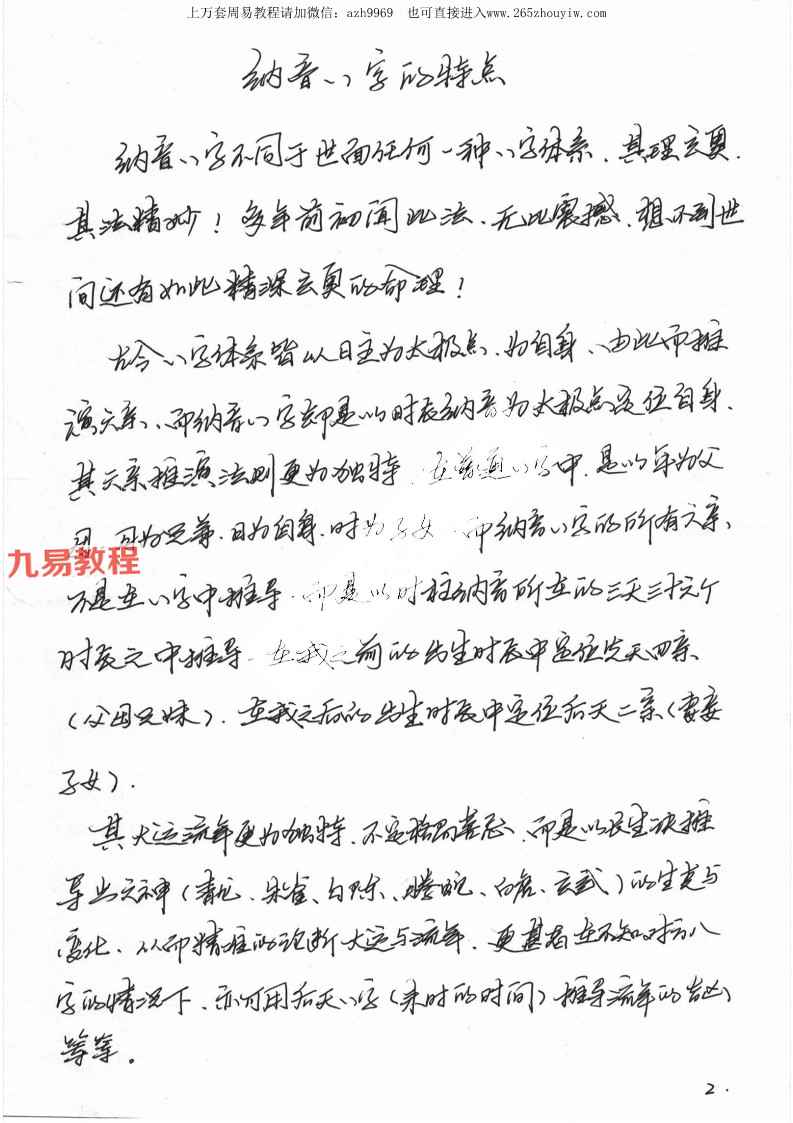 上万套周易教程请加微信：azh9969 也可直接进入www.265zhouyiw.com
纳音八字的特点
纳音八字不同于世面任何一种八字体系、其理玄奥、
其法精妙！多年前初闻此法、无比震撼、想不到世
间还有如此精深玄奥的命理！
古今八字体系皆以日主为太极点、为自身、由此而推
演六亲、而纳音八字却是以时辰纳音为太极点定位自身、
其六亲推演法则更为独特、在普通八字中、是以年为父
母、月为兄弟、日为自身、时为子女、而纳音八字的所有六亲、
不是在八字中推导、而是以时柱纳音所在的三天三十六个
时辰之中推导、在我之前的出生时辰中定位先天四亲、
（父母兄妹）、在我之后的出生时辰中定位后天二亲（妻妾
子女）.
九易教程
其大运流年更为独特、不定格局喜忌、而是以长生诀推
导出六神（青龙、朱雀、勾陈、腾蛇、白虎、玄武）的生克与
变化、从而精准的论断大运与流年、更甚者在不知对方八
字的情况下、亦可用后天八字（来时的时间）推导流年的吉凶
等等。
2.